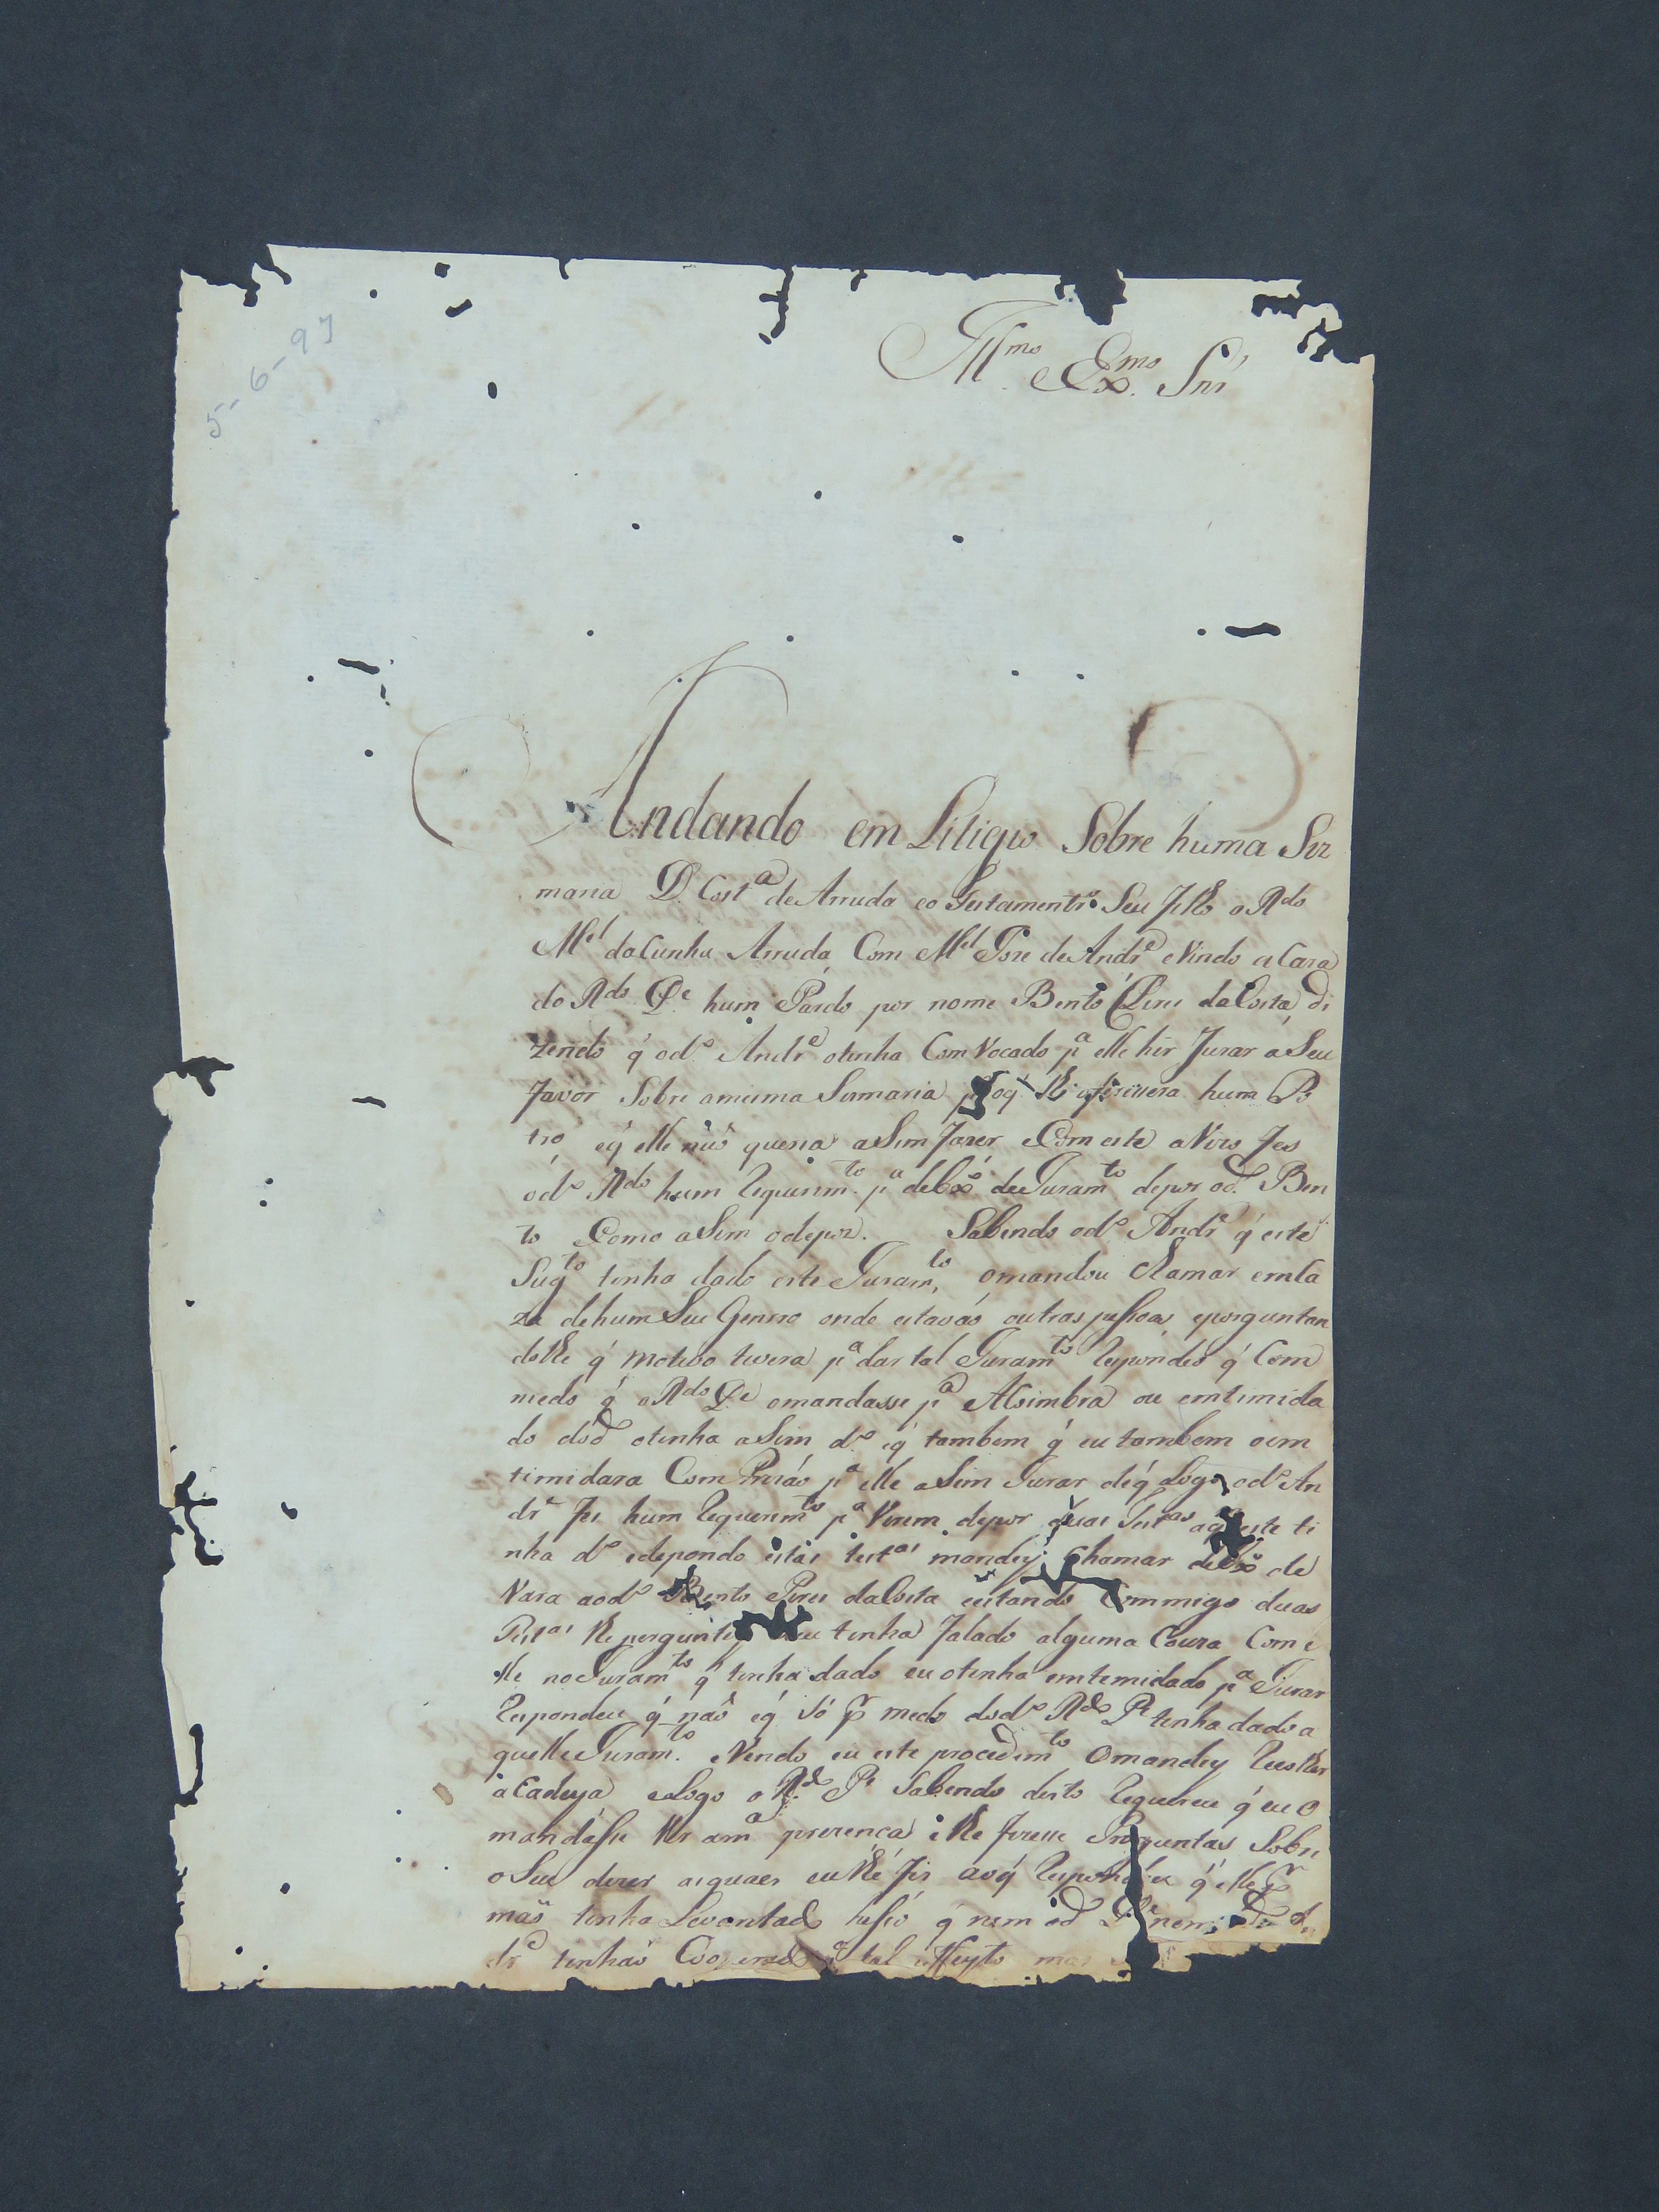 5-6-97
Illmo Exmo Snr'
Andando em Litigio Sobre huma Siz
maria D. Costa de Arruda eo Testamentro Seu filho o Rdo
Mel da Cunha Arruda, Com Mel Jose de Andre eVindo a Caza
do Rdo Pe hum Pardo por nome Bento Pires da Costa, di
zendo q' odo Andre otinha ComVocado pa elle hir Jurar aSeu
favor Sobre amesma Sismaria oq' lhe oferesera hum Po
tro, eq' elle não queria aSim fazer eCom este aVizo fes
odo Rdo hum Requerimto pa debxo deJuramto depor od Ben
to eComo aSim odepoz. Sabendo odo Andre q' este
Sugto tinha dado este Juramto, omandou Chamar emCa
za dehum Seu Genrro onde estavão outras pessoas, eporguntan
dolhe q' motivo tivera pa dar tal Juramto Respondeo q' Com
medo q' oRdo Pe omandasse pa ACoimbra ou emtimida
do dod otinha aSim do eq' tambem q' eu tambem oim
timidara Com Prizão pa elle aSim Jurar deq' Logo odo An
dre fes hum Requerimto pa Virem depor duas Testas aq' este ti
nha do edepondo estas testas mandey Chamar debxo de
Vara aodo Bento Pires daCosta estando Commigo duas
Testas lhe porguntey eu tinha falado alguma Couza Com e
lle no Juramto q' tinha dado eu otinha emtemidado pa Jurar
Respondeu q' não eq' Só pr medo dodo Rdo Pe tinha dado a
quelle Juramto. eVendo eu este procedimto Omandey Recolher
a Cadeya eLogo o Rdo Pe Sabendo disto Requereu q' eu O
mandasse Vir ama prezença e lhe fizesse Preguntas Sobre
oSeu dizer asquaes eulhe fis aoq' Respondeu q' elle pr
máo tinha Levantado q' nem od Pe nem An
dre tinhão Cooperado pa tal effeyto mas